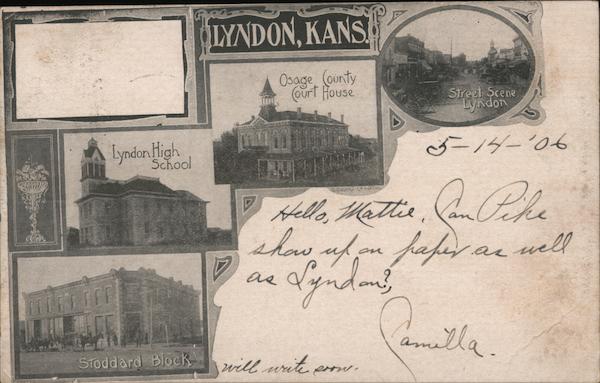 LYNDON, KANS.
Osage County
Court House
Street Scene
Lyndon
Lyndon High
School
Stoddard Block
5-14-'06
Hello, Mattie, Can Pike
show up on paper as well
as Lyndon?,
Camilla.
will write soon.